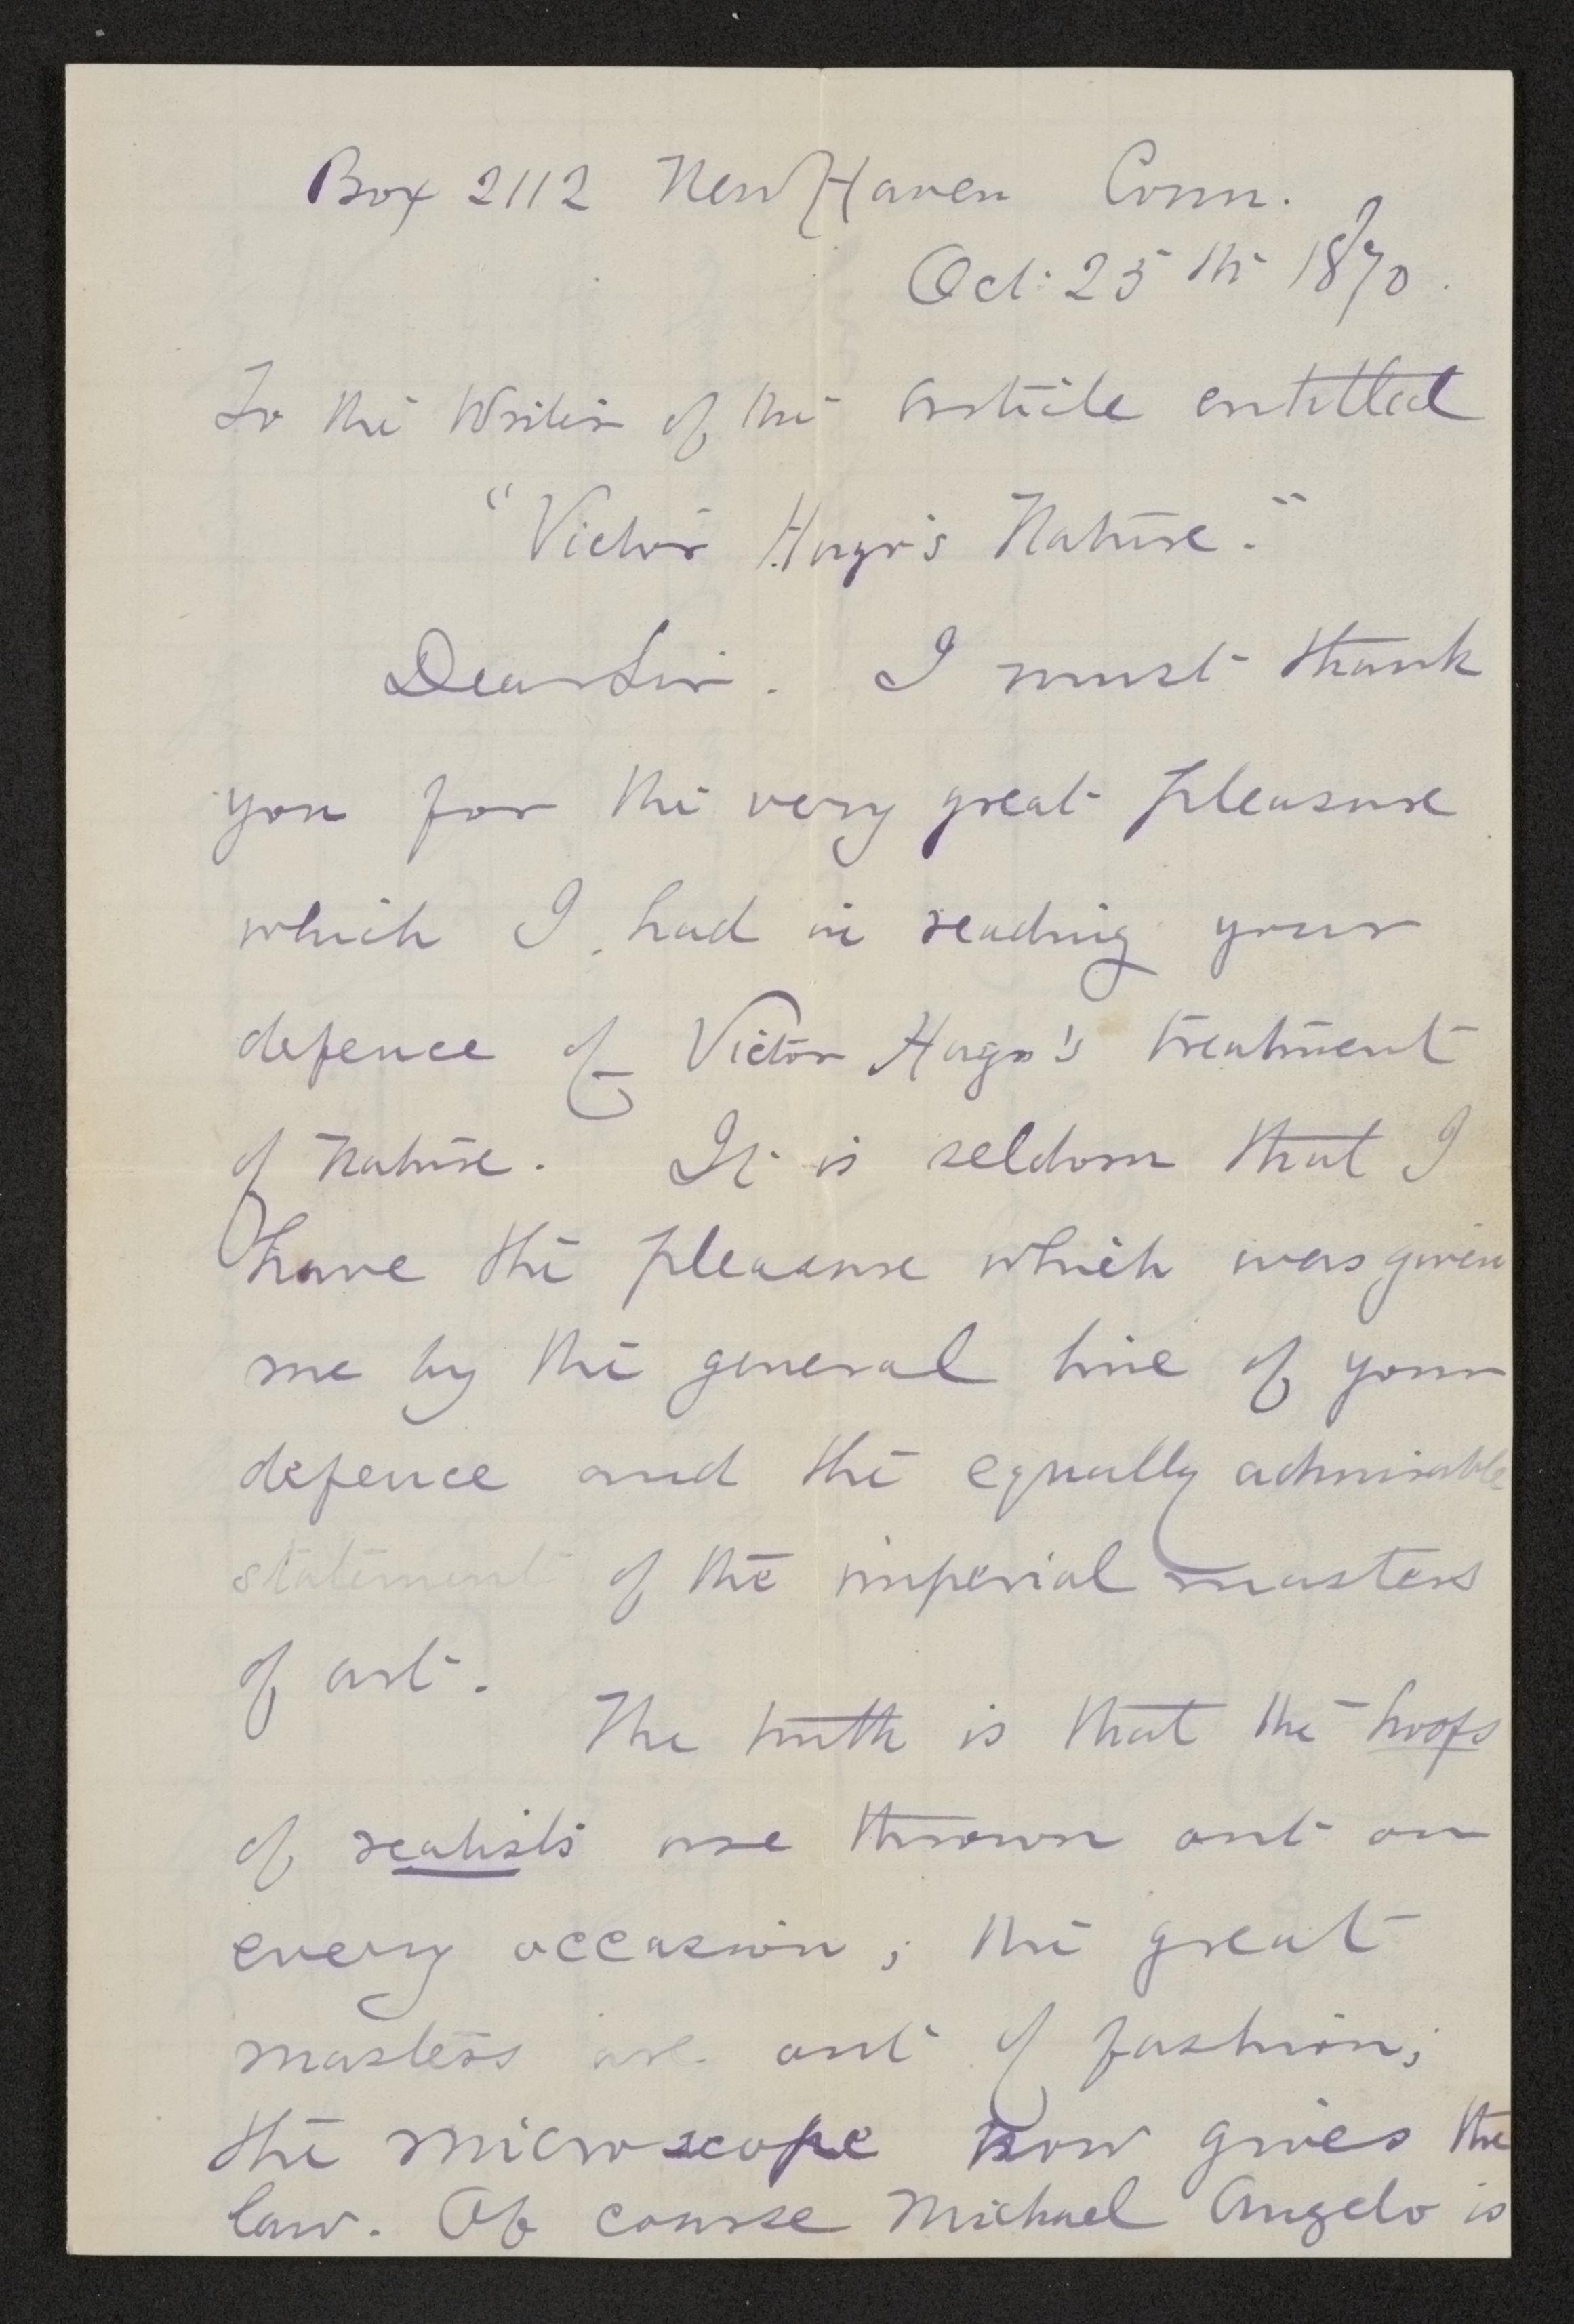 Box 2112 New Haven Conn.
Oct: 25th 1870.
To the Writer of the article entitled
"Victor Hugo's Nature."
Dear Sir. I must thank
you for the very great pleasure
which I had in reading your
defence of Victor Hugo's treatment
of nature. It is seldom that I
have the pleasure which was given
me by the general line of your
defence and the equally admirable
statement of the imperial masters
of art.
The truth is that the hoofs
of realists are thrown out on
every occasion; the great
masters are out of fashion;
the microscope now gives the
law. Of course Michael Angelo is